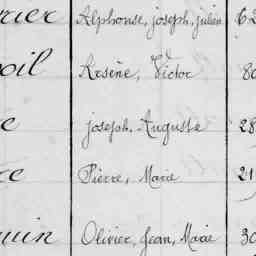 rrier Alphonse, joseph, julien 62
oil Arsène, Victor 80
e joseph, Auguste 28
re Pierre, Marie 21
uin Olivier, Jean, Marie 30